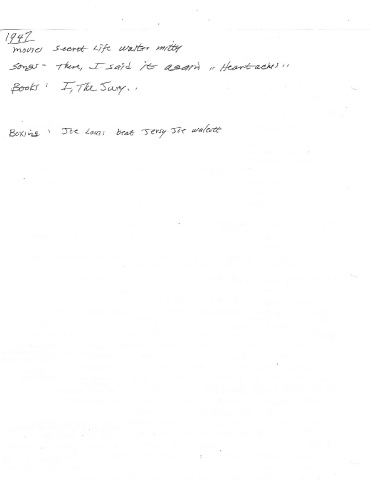 1947
movies secret Life walter mitty
Songs - There, I said it again ,, Heartaches ..
Books : I, The Jury . .
Boxing : Joe Louis beat Jersy Joe walcott